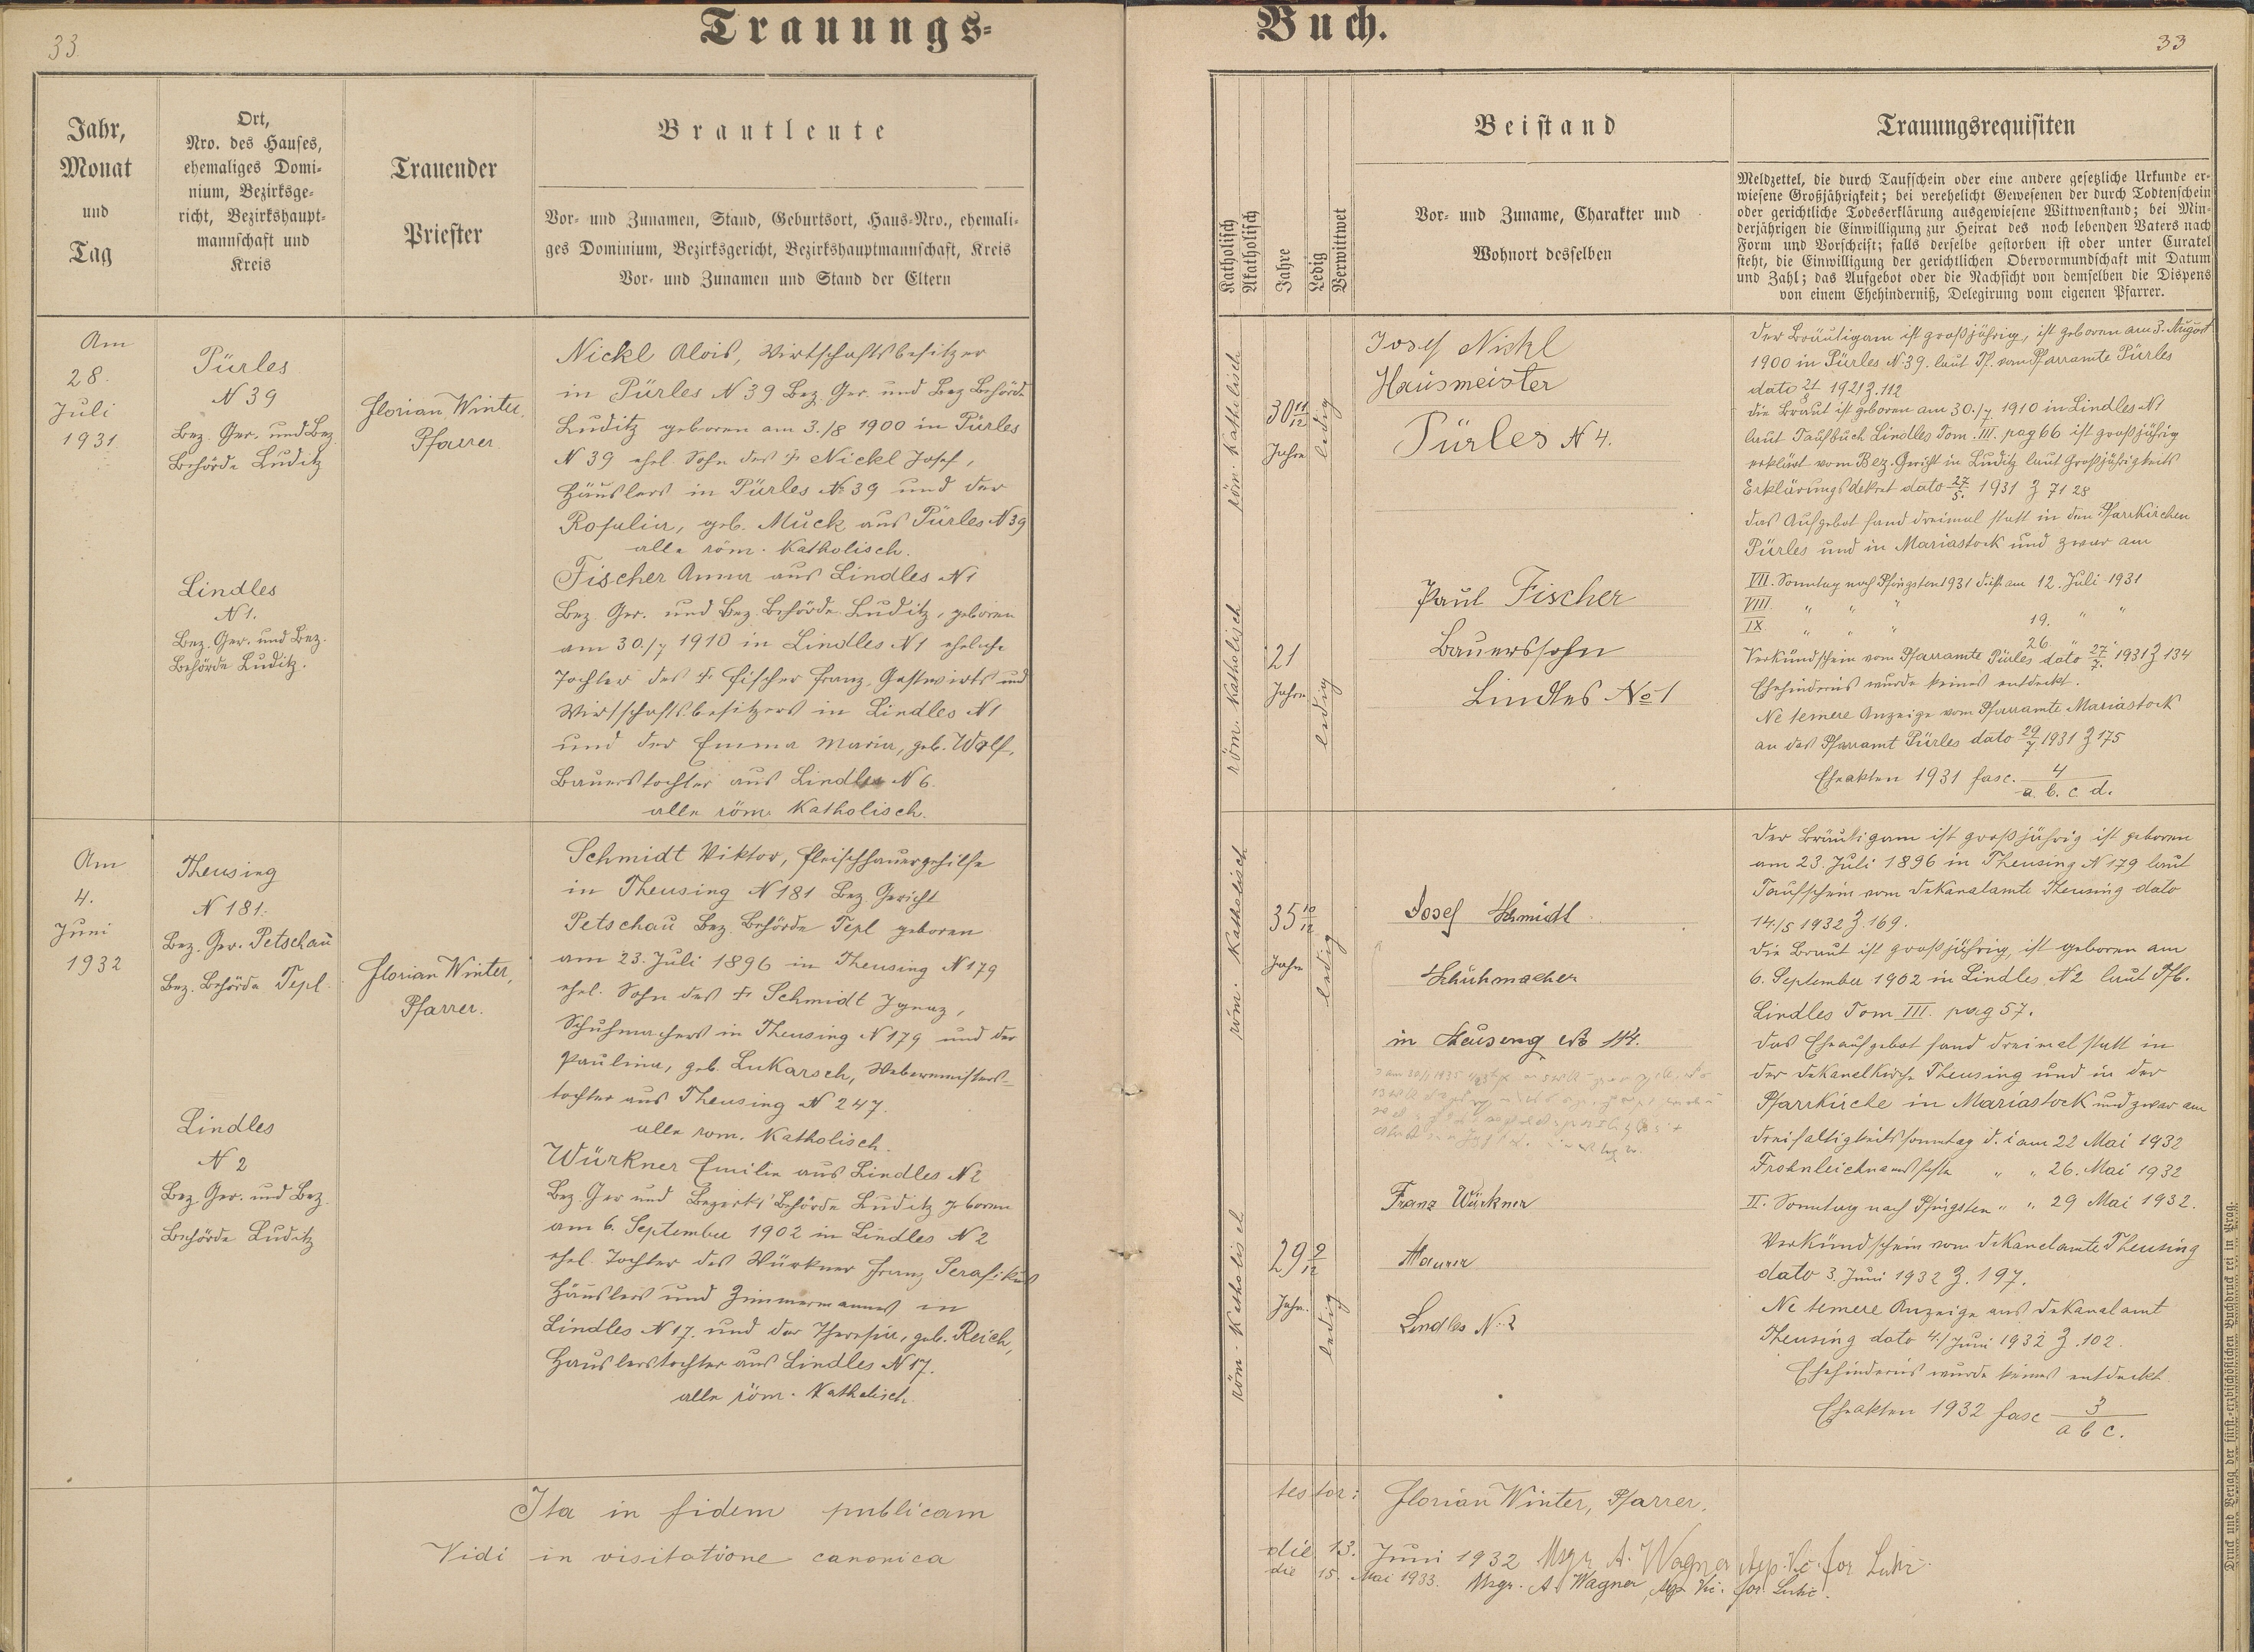 33.
Trauungs-
Jahr,
Monat
und
Tag
Ort,
Nro. des Hauses,
ehemaliges Domi-
nium, Bezirksge-
richt, Bezirkshaupt-
mannschaft und
Kreis
Trauender
Priester
Brautleute
Vor- und Zunamen, Stand, Geburtsort, Haus-Nro., ehemali-
ges Dominium, Bezirksgericht, Bezirkshauptmannschaft, Kreis
Vor- und Zunamen und Stand der Eltern
Am
28.
Juli
1931
Pürles
N 39
Bez. Ger. und Bez.
Behörde Luditz
Lindles
N 1.
Bez. Ger. und Bez.
Behörde Luditz.
Florian Winter,
Pfarrer
Nickl Alois, Wirtschaftsbesitzer
in Pürles N 39 Bez Ger. und Bez Behörde
Luditz geboren am 3./8 1900 in Pürles
N 39 ehel. Sohn des † Nickl Josef,
Häuslers in Pürles N 39 und der
Rosalia, geb. Muck aus Pürles N 39
alle röm. Katholisch.
Fischer Anna aus Lindles N 1
Bez Ger. und Bez. Behörde Luditz, geboren
am 30./7 1910 in Lindles N 1 eheliche
Tochter des † Fischer Franz, Gastwirts und
Wirtschaftsbesitzers in Lindles N 1
und der Emma Maria, geb. Wolf,
Bauerstochter aus Lindles N 6.
alle röm. Katholisch.
Am
4.
Juni
1932
Theusing
N 181.
Bez. Ger. Petschau
Bez. Behörde Tepl
Lindles
N 2
Bez Ger. und Bez.
Behörde Luditz
Florian Winter,
Pfarrer.
Schmidt Viktor, Fleischhauergehilfe
in Theusing N 181 Bez Gericht
Petschau Bez. Behörde Tepl geboren
am 23. Juli 1896 in Theusing N 179
ehel. Sohn des † Schmidt Ignaz,
Schuhmachers in Theusing N 179 und der
Paulina, geb. Lukarsch, Webermeisters-
tochter aus Theusing N 247.
alle rom. Katholisch.
Würkner Emilie aus Lindles N 2
Bez. Ger und Bezirks Behörde Luditz geboren
am 6. September 1902 in Lindles N 2
ehel. Tochter des Würkner Franz Serafikus
Häuslers und Zimmermannes in
Lindles N 17. und der Theresia, geb. Reich,
Häuslerstochter aus Lindles N 17.
alle röm. Katholisch.
Ita in fidem publicam
Vidi in visitatione canonica
Buch.
33
Katholisch
Akatholisch
Jahre
Ledig
Verwittwet
Beistand
Vor- und Zuname, Charakter und
Wohnort desselben
Trauungsrequisiten
Meldzettel, die durch Taufschein oder eine andere gesetzliche Urkunde er-
wiesene Großjährigkeit; bei verehelicht Gewesenen der durch Todtenschein
oder gerichtliche Todeserklärung ausgewiesene Wittwenstand; bei Min-
derjährigen die Einwilligung zur Heirat des noch lebenden Vaters nach
Form und Vorschrift; falls derselbe gestorben ist oder unter Curatel
steht, die Einwilligung der gerichtlichen Obervormundschaft mit Datum
und Zahl; das Aufgebot oder die Nachsicht von demselben die Dispens
von einem Ehehinderniß, Delegirung vom eigenen Pfarrer.
röm. Katholisch
30 11/12
Jahre
ledig
Josef Nickl
Hausmeister
Pürles N 4.
röm. Katholisch
21
Jahre
ledig
Paul Fischer
Bauerssohn
Lindles No 1
Der Bräutigam ist großjährig, ist geboren am 3. August
1900 in Pürles N 39. laut Tf. vom Pfarramte Pürles
dato 21/8 1921 Z. 112
Die Braut ist geboren am 30./7 1910 in Lindles N 1
laut Taufbuch Lindles Tom. III. pag 66 ist großjährig
erklärt vom Bez. Gericht in Luditz laut Großjährigkeits
Erklärungsdekret dato 27/5. 1931 Z 71 28
Das Aufgebot fand dreimal statt in den Pfarrkirchen
Pürles und in Mariastock und zwar am
VII. Sonntag nach Pfingsten 1931 d. ist am 12. Juli 1931
VIII. " " "
19. " "
IX " " "
26 " "
Verkündschein vom Pfarramte Pürles dato 27/7. 1931 Z 134
Ehehindernis wurde keines entdeckt.
Ne temere Anzeige vom Pfarramte Mariastock
an das Pfarramt Pürles dato 29/7 1931 Z 175
Eheakten 1931 fasc. 4
a. b. c d.
röm. Katholisch
35 10/12
Jahre
ledig
Josef Schmidt
Schuhmacher
in Theusing No 144.
röm. Katholisch
29 9/12
Jahre.
ledig
Franz Würkner
Maurer
Lindles N. 2
Der Bräutigam ist großjährig ist geboren
am 23. Juli 1896 in Theusing N 179 laut
Taufschein vom Dekanalamte Theusing dato
14./5 1932 Z. 169.
Die Braut ist großjährig, ist geboren am
6. September 1902 in Lindles N 2 laut Tfb.
Lindles Tom III. pag 57.
Das Eheaufgebot fand dreimal statt in
der Dekanalkirche Theusing und in der
Pfarrkirche in Mariastock und zwar am
Dreifaltigkeitssonntag d. i am 22 Mai 1932
Frohnleichnamsfeste " " 26. Mai 1932
II. Sonntag nach Pfingsten " " 29 Mai 1932.
Verkündschein vom Dekanalamte Theusing
dato 3. Juni 1932 Z. 197.
Ne temere Anzeige ans Dekanalamt
Theusing dato 4./Juni 1932 Z. 102.
Ehehindernis wurde keines entdeckt
Eheakten 1932 fasc 3
a b c.
testor: Florian Winter, Pfarrer.
die 13. Juni 1932 Msgr A. Wagner for
die 15. Mai 1933. Msgr. A. Wagner for
Druck und Verlag der fürst.-erzbischöflichen Buchdruckerei in Prag.